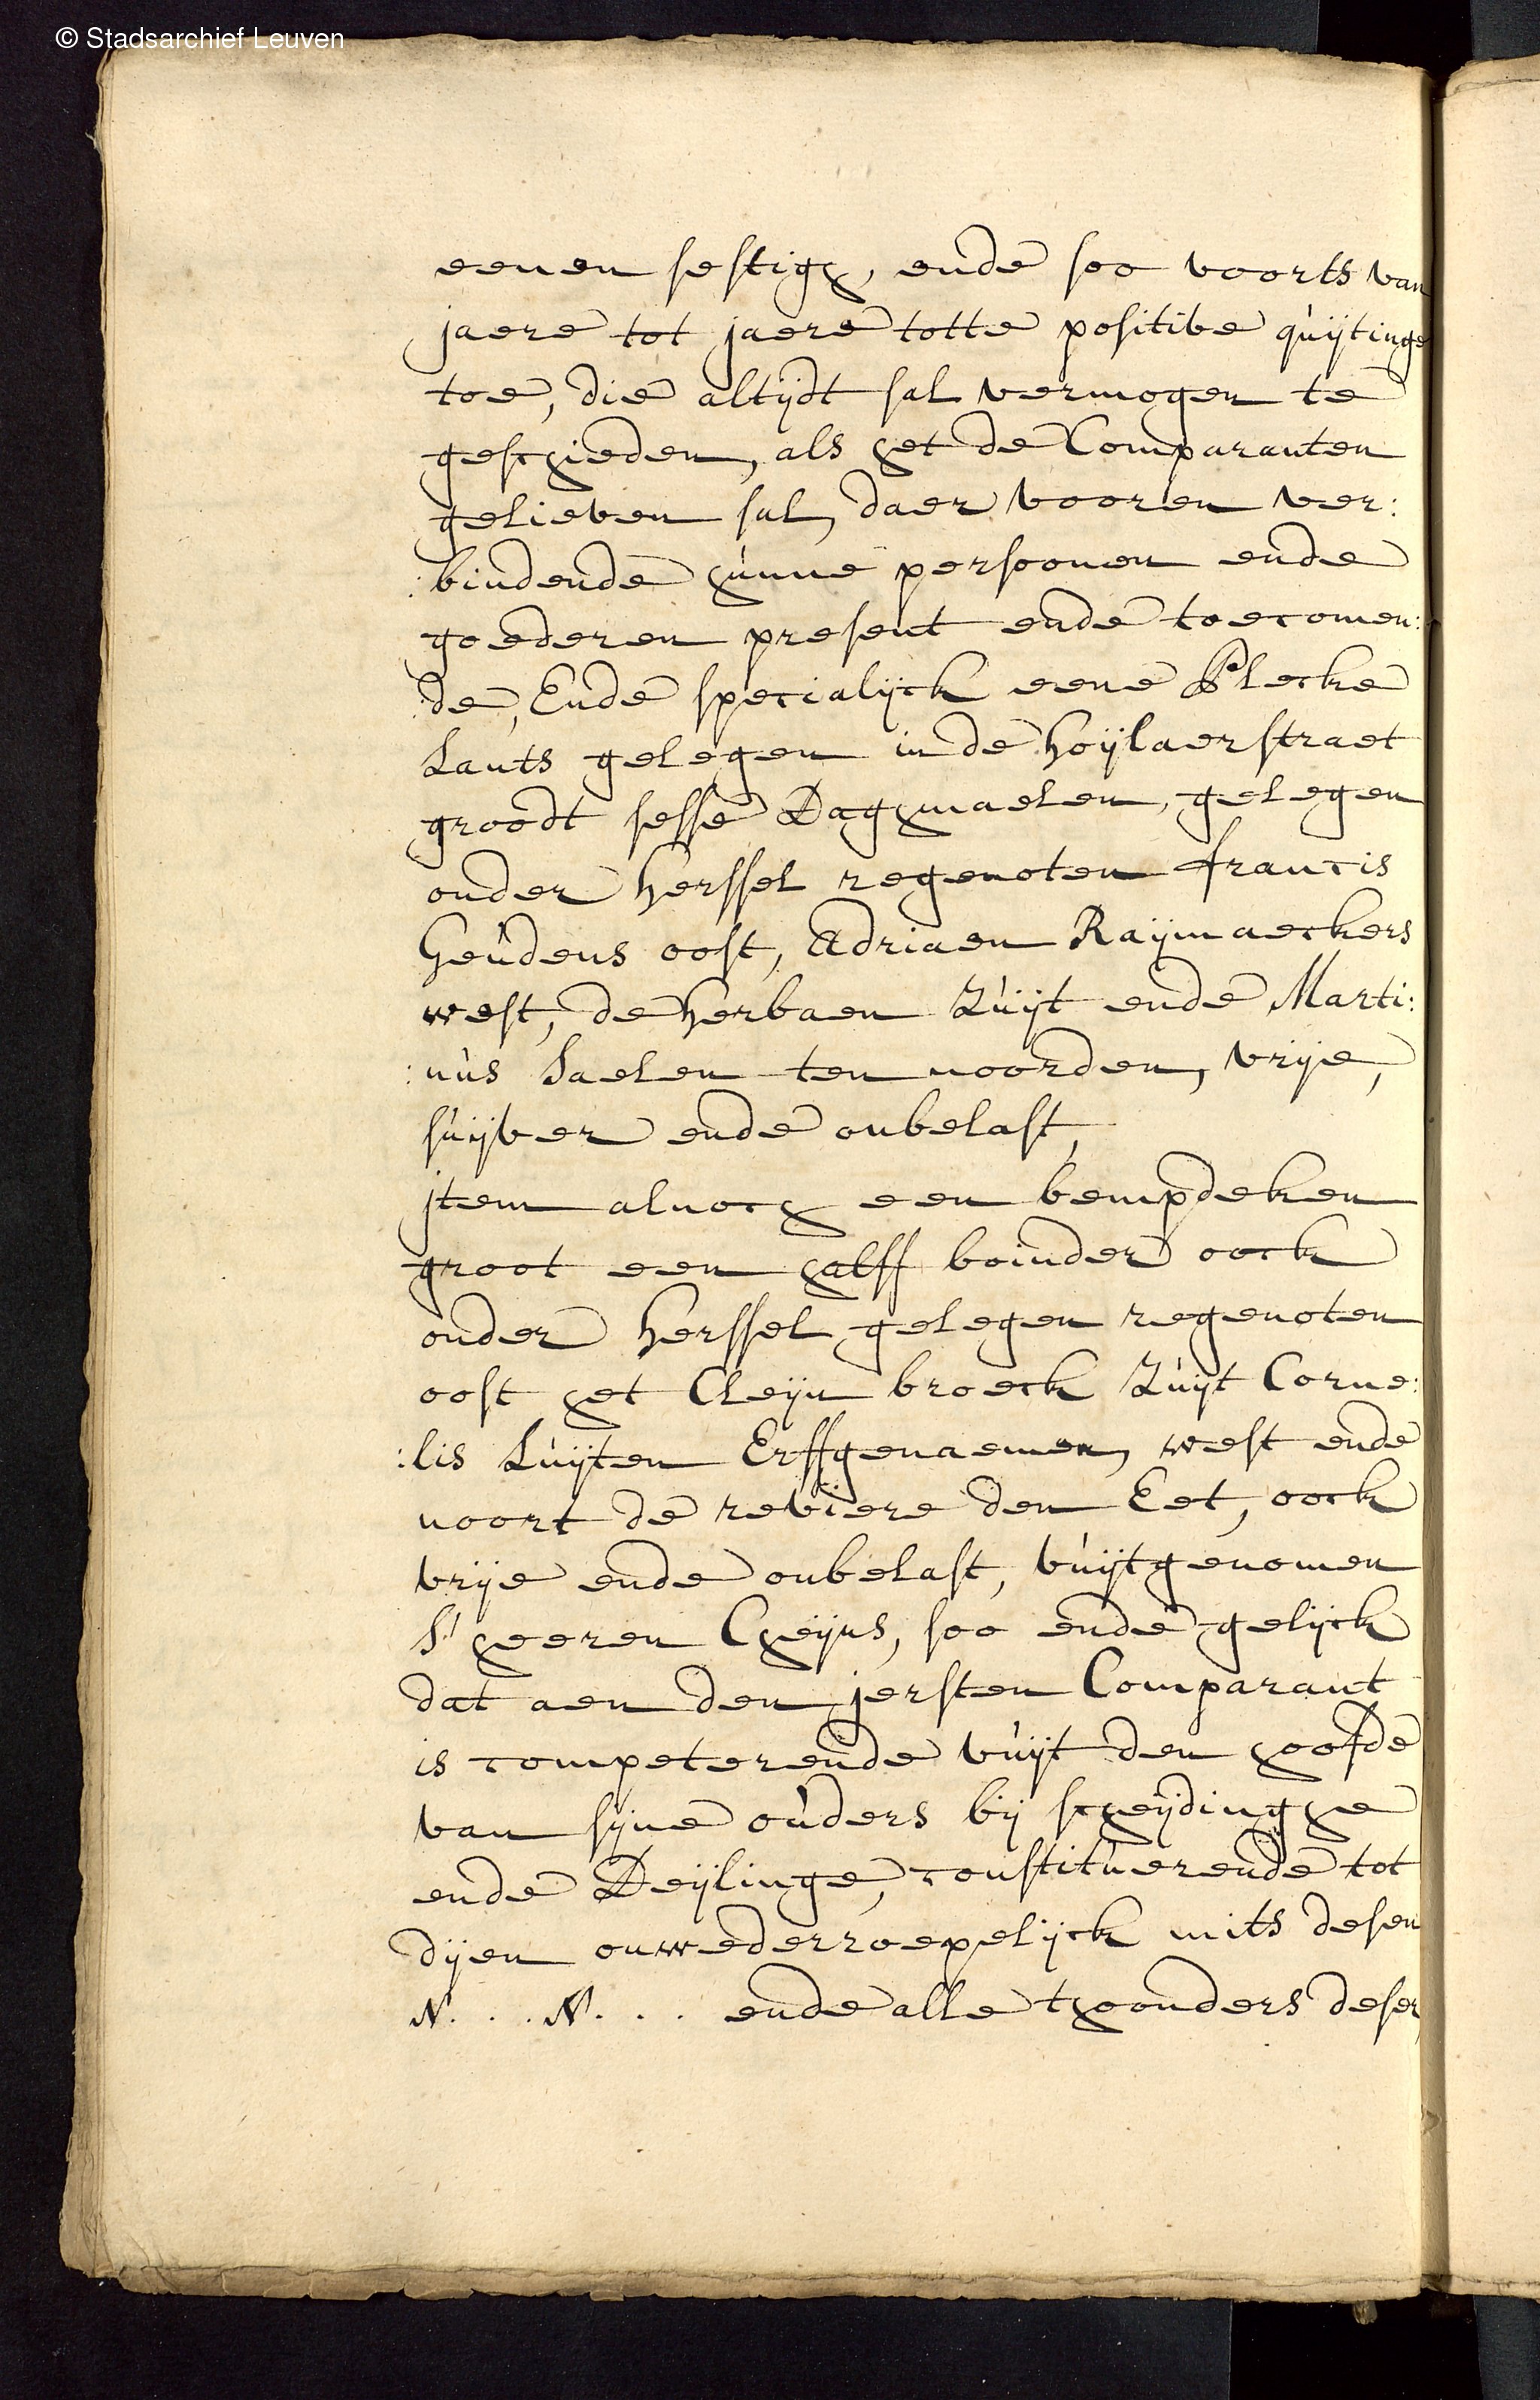 © Stadsarchief Leuven
eenen sestigh, ende soo voorts van
jaere tot jaere totte positive quijtinge
toe, die altijdt sal vermogen te
geschieden, als het de Comparanten
gelieven sal, daer vooren ver:
:bindende hunne persoonen ende
goederen present ende toecomen:
:de, Ende specialijck eene Plecke
Lants gelegen in de hoijlaerstraet
groodt sesse Daghmaelen, gelegen
onder herssel regenoten francis
Geudens oost, Adriaen Raijmaeckers
west, de herbaen Zuijt ende Marti:
:nus Daelen ten noorden, vrije,
suijver ende onbelast,
jtem alnoch een bempdeken
groot een halff boinder oock
onder herssel gelegen regenoten
oost het Cleijn broeck Zuijt Corne:
:lis Luijten Erffgenaemen, west ende
noort de reviere den Eet, oock
vrije ende onbelast, vuijtgenomen
S'heeren Cheijns, soo ende gelijck
dat aen den jersten Comparant
is competerende vuijt den hoofde
van sijne ouders bij scheijdinghe
ende Deijlinge, constituerende tot
dijen onwederroepelijck mits desen
N. . . N. . . ende alle thoonders deser